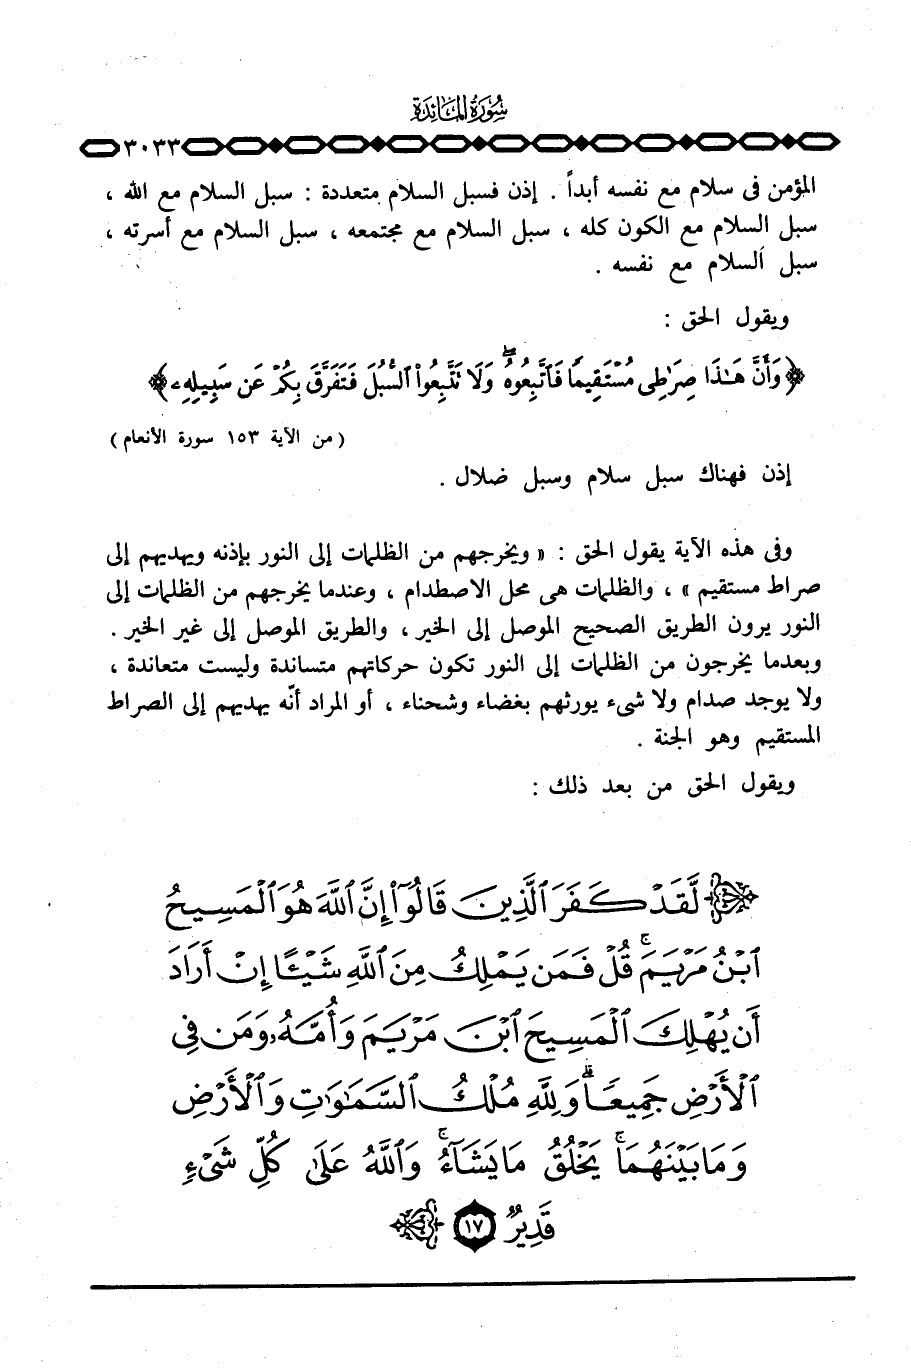 سُورَةُ المَائِدَة
٣٠٣٣
المؤمن فى سلام مع نفسه أبداً . إذن فسبل السلام متعددة : سبل السلام مع الله ،
سبل السلام مع الكون كله ، سبل السلام مع مجتمعه ، سبل السلام مع أسرته ،
سبل السلام مع نفسه .
ويقول الحق :
﴿ وَأَنَّ هَـٰذَا صِرَٰطِى مُسْتَقِيمًا فَٱتَّبِعُوهُ ۖ وَلَا تَتَّبِعُوا۟ ٱلسُّبُلَ فَتَفَرَّقَ بِكُمْ عَن سَبِيلِهِۦ ﴾
( من الآية ١٥٣ سورة الأنعام )
إذن فهناك سبل سلام وسبل ضلال .
وفى هذه الآية يقول الحق : « ويخرجهم من الظلمات إلى النور بإذنه ويهديهم إلى
صراط مستقيم » ، والظلمات هى محل الاصطدام ، وعندما يخرجهم من الظلمات إلى
النور يرون الطريق الصحيح الموصل إلى الخير ، والطريق الموصل إلى غير الخير .
وبعدما يخرجون من الظلمات إلى النور تكون حركاتهم متساندة وليست متعاندة ،
ولا يوجد صدام ولا شىء يورثهم بغضاء وشحناء ، أو المراد أنّه يهديهم إلى الصراط
المستقيم وهو الجنة .
ويقول الحق من بعد ذلك :
لَّقَدْ كَفَرَ ٱلَّذِينَ قَالُوٓا۟ إِنَّ ٱللَّهَ هُوَ ٱلْمَسِيحُ
ٱبْنُ مَرْيَمَ ۚ قُلْ فَمَن يَمْلِكُ مِنَ ٱللَّهِ شَيْـًٔا إِنْ أَرَادَ
أَن يُهْلِكَ ٱلْمَسِيحَ ٱبْنَ مَرْيَمَ وَأُمَّهُۥ وَمَن فِى
ٱلْأَرْضِ جَمِيعًا ۗ وَلِلَّهِ مُلْكُ ٱلسَّمَـٰوَٰتِ وَٱلْأَرْضِ
وَمَا بَيْنَهُمَا ۚ يَخْلُقُ مَا يَشَآءُ ۚ وَٱللَّهُ عَلَىٰ كُلِّ شَىْءٍ
قَدِيرٌ ١٧